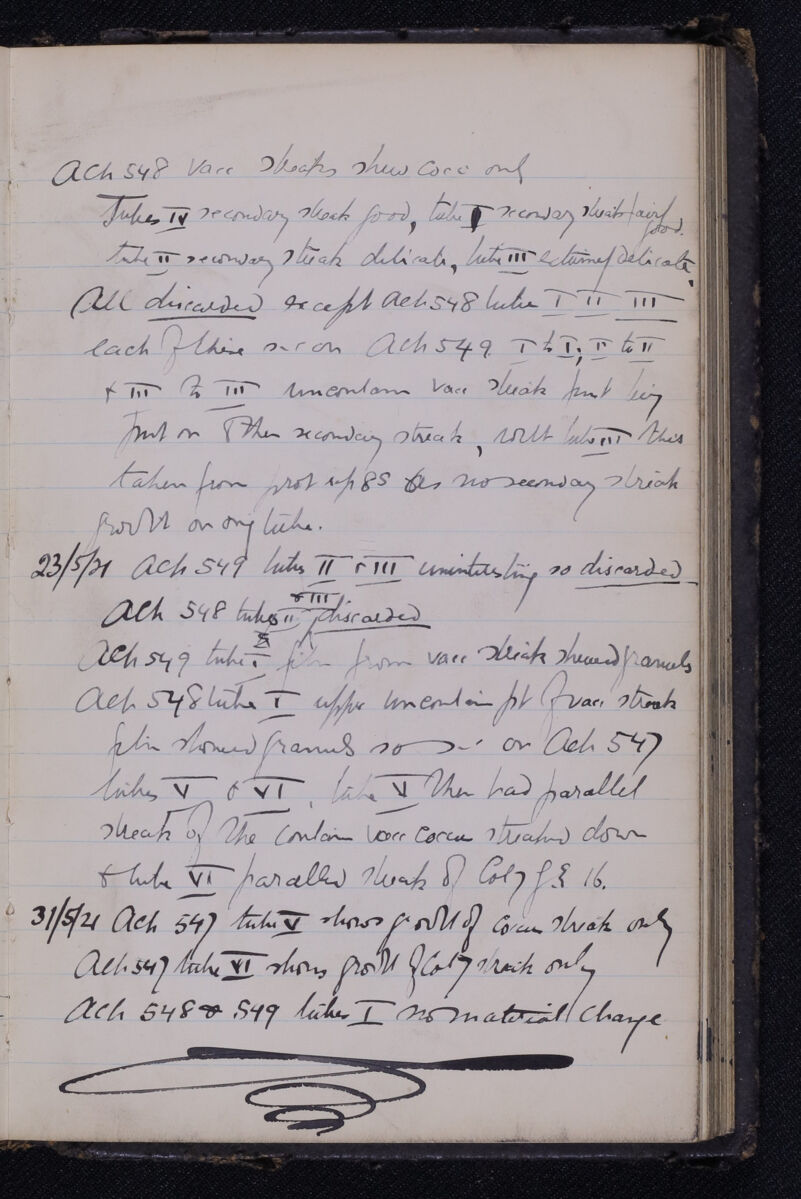 Ach 548 vacc streaks shew cocci only
Tubes IV secondary streak good, tube I secondary streak fairly good.
tube II secondary streak delicate, tube III extremely delicate,
All discarded except Ach 548 tubes I II III
each of these s-c on Ach 549 I to I, II to II
& III to III uncontam vacc streak first being
put on & then secondary streak, with tube III this
taken from prot as no secondary streak
growth on orig tube.
23/5/21 Ach 549 tubes II & III uninteresting so discarded
Ach 548 tubes II & III discarded
Ach 549 tube I film from vacc streak shewed granules
Ach 548 tube I upper uncontam pt of vacc streak
film showed granules so s-c on Ach 547
tubes V & VI, tube V then had parallel
streak of the contam vacc coccus streaked down
& tube VI parallel streak of Coly 16.
31/5/21 Ach 547 tube V shows growth of coccus streak only
Ach 547 tube VI shows growth of Coly streak only
Ach 548 & 549 tubes I no material change